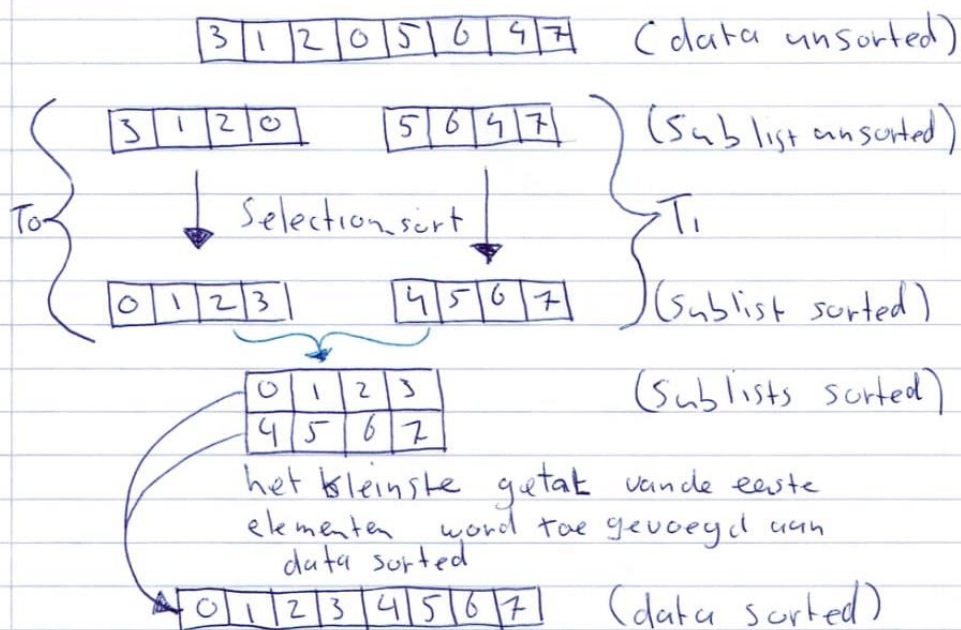 3 1 2 0 5 6 4 7 (data unsorted)
3 1 2 0 5 6 4 7 (Sublist unsorted)
T0 Selection sort T1
0 1 2 3 4 5 6 7 (Sublist sorted)
0 1 2 3 (Sublists sorted)
4 5 6 7
het kleinste getal van de eerste
elementen word toe gevoegd aan
data sorted
0 1 2 3 4 5 6 7 (data sorted)